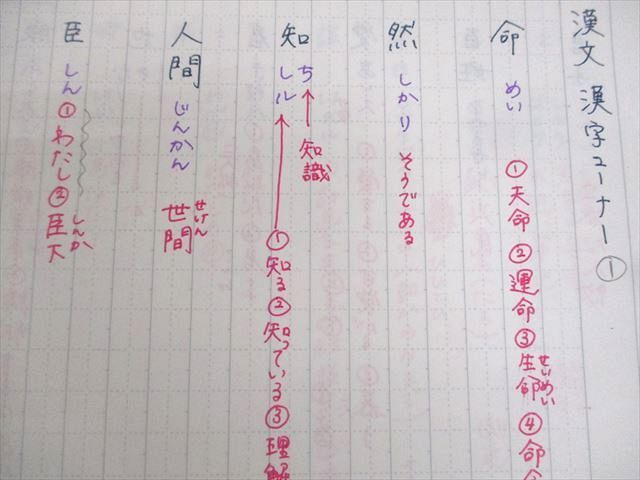 漢文 漢字コーナー①
命 めい ①天命②運命③生命④命令
せいめい
然 しかり そうである
知 ち ← 知識
しル ← ①知る②知っている③理解
人間 じんかん 世間
せけん
臣 しん ①わたし②臣下
しんか